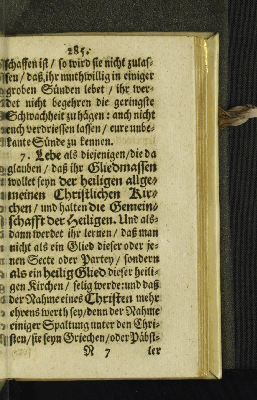 285.
schaffen ist / so wird sie nicht zulas-
sen / daß ihr muthwillig in einiger
groben Sünden lebet / ihr wer-
det nicht begehren die geringste
Schwachheit zu hägen: auch nicht
euch verdriessen lassen / eure unbe-
kante Sünde zu kennen.
7. Lebe als diejenigen / die da
glauben / daß ihr Gliedmassen
wollet seyn der heiligen allge-
meinen Christlichen Kir-
chen / und halten die Gemein-
schafft der Heiligen. Und als-
dann werdet ihr lernen / daß man
nicht als ein Glied dieser oder je-
nen Secte oder Partey / sondern
als ein heilig Glied dieser heili-
gen Kirchen / selig werde: und daß
der Nahme eines Christen mehr
ehrens werth sey / denn der Nahme
einiger Spaltung unter den Chri-
sten / sie seyn Griechen / oder Päbst-
N 7 ler